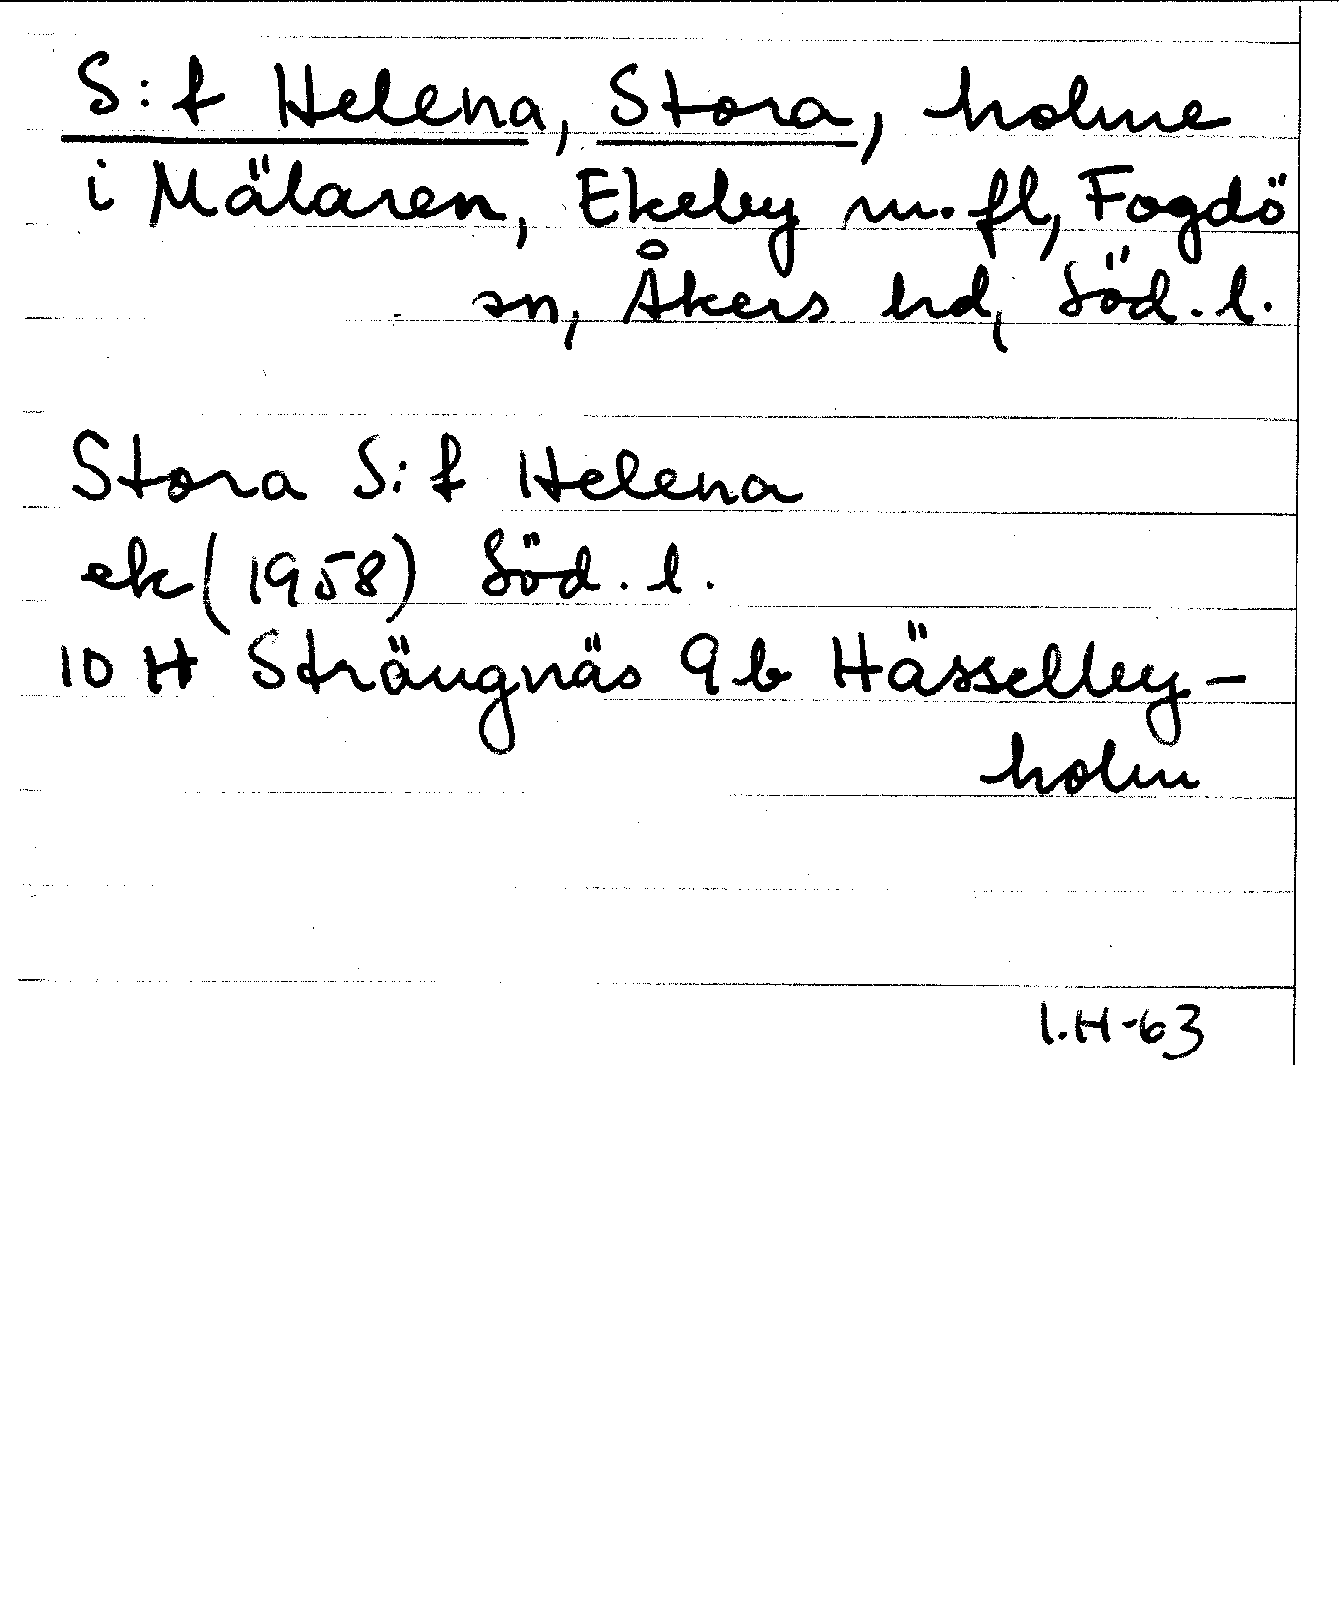 S:t Helena, Stora, holme
i Mälaren, Ekeby m.fl, Fogdö
sn, Åkers hd, Söd. l.
Stora S:t Helena
ek (1958) Söd. l.
10 H Strängnäs 9b Hässelby-
holm
I.H-63